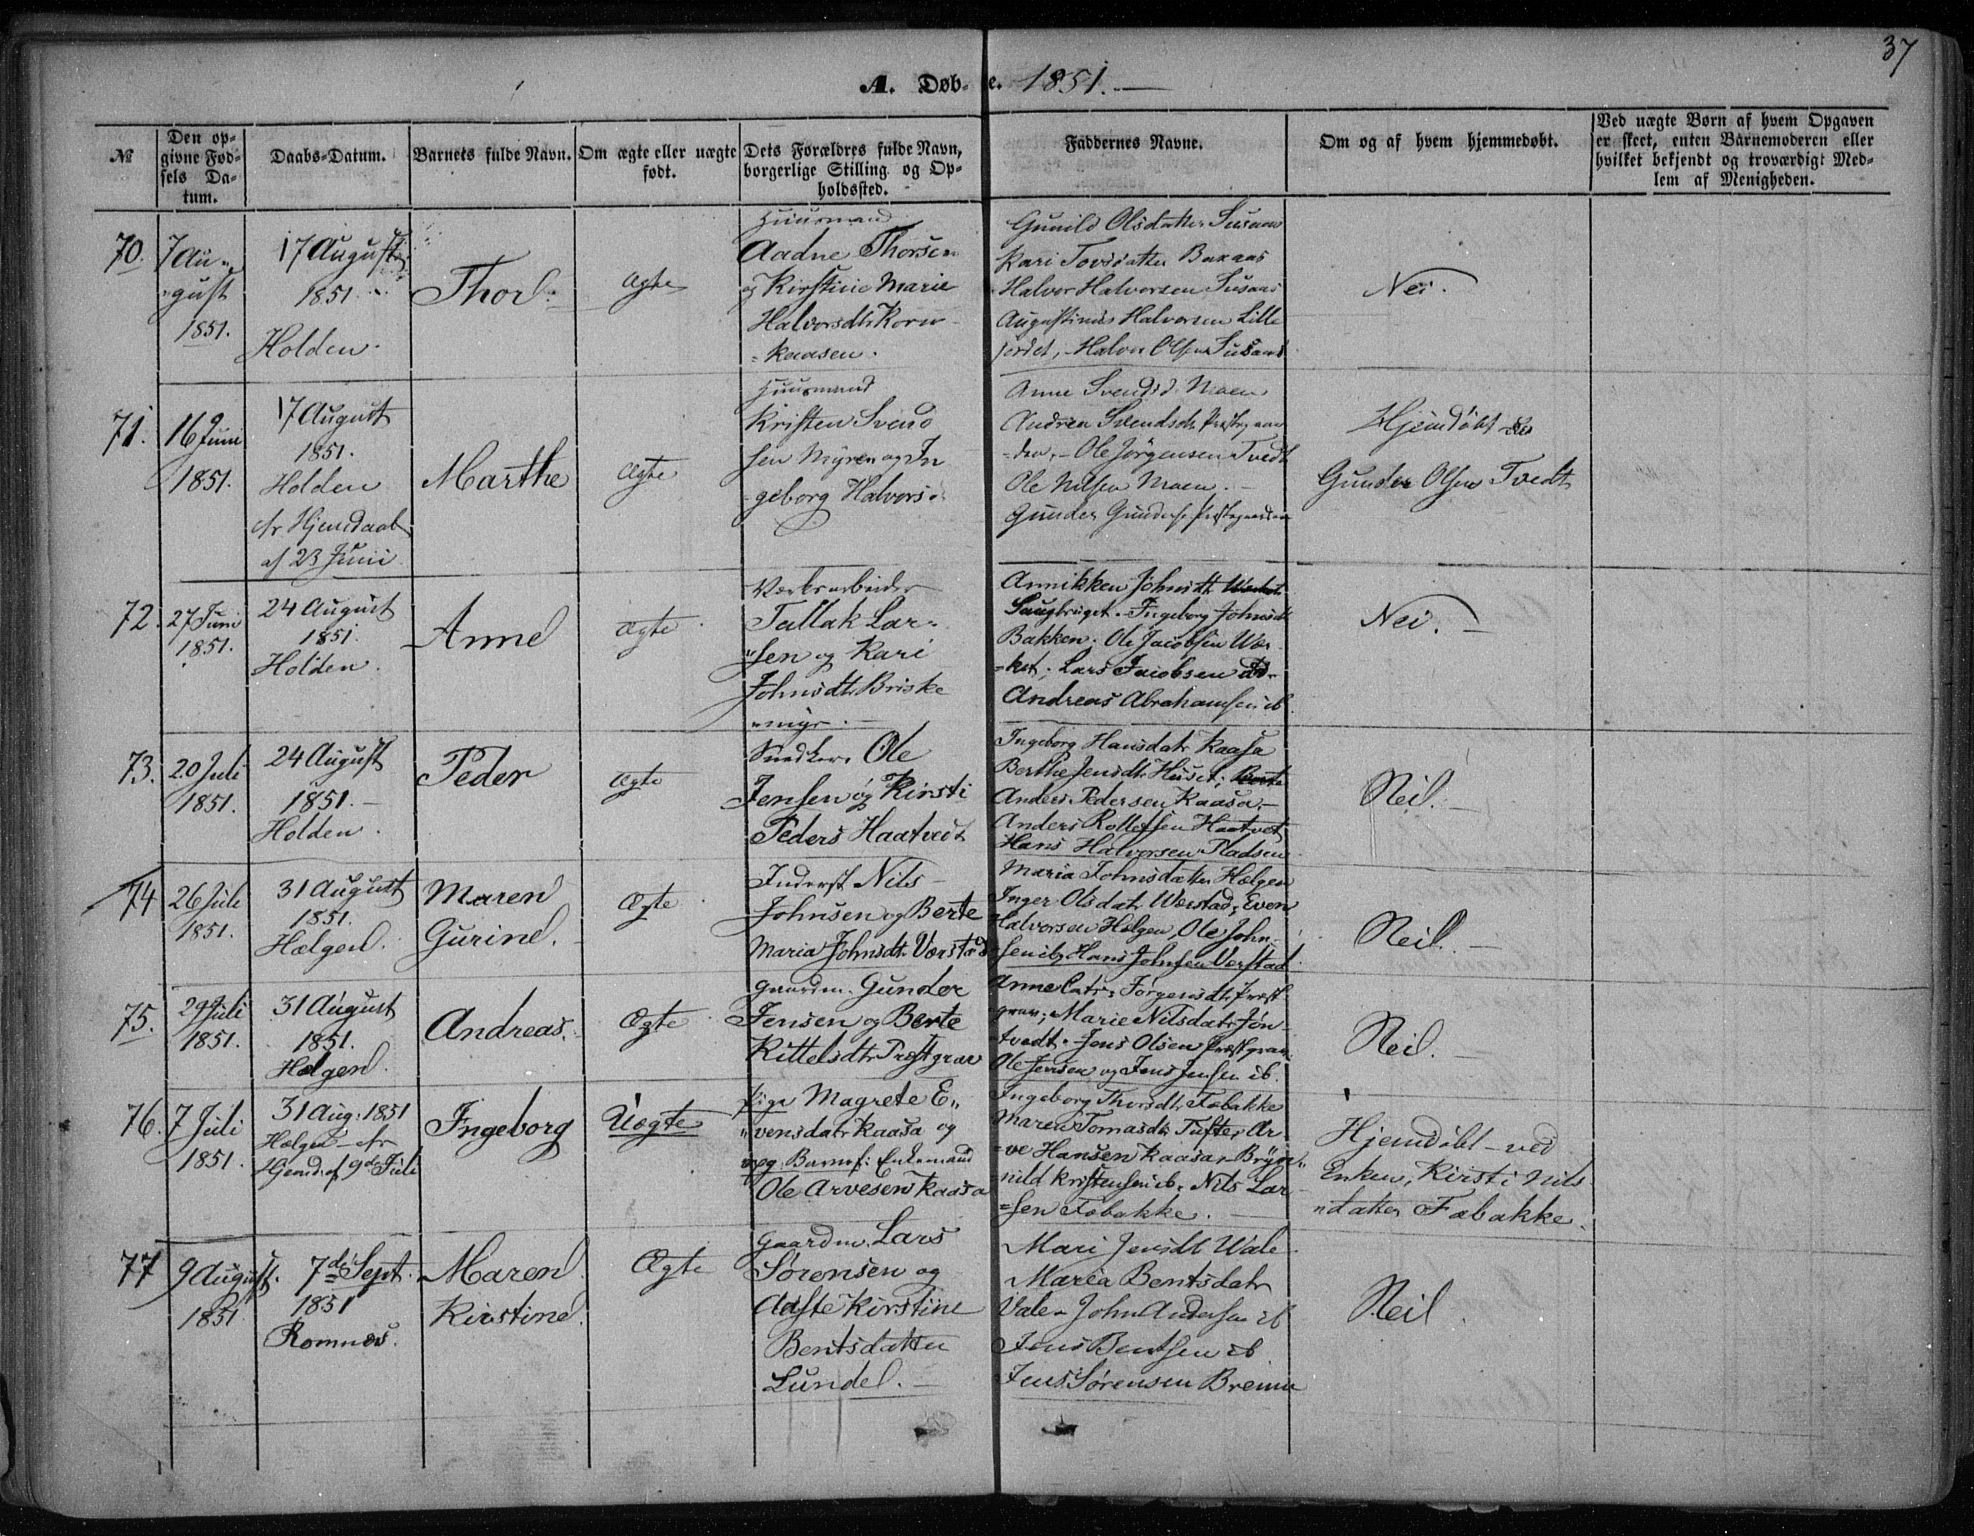 37
A. Døb- e. 1851.
№
Den op-
givne Fød-
sels Da-
tum.
Daabs-Datum.
Barnets fulde Navn.
Om ægte eller uægte
født.
Dets Forældres fulde Navn,
borgerlige Stilling og Op-
holdssted.
Faddernes Navne.
Om og af hvem hjemmedøbt.
Ved uægte Børn af hvem Opgaven
er skeet, enten Barnemoderen eller
hvilket bekjendt og troværdigt Med-
lem af Menigheden.
70.
7 Au-
gust
1851.
17 August
1851.
Holden.
Thor
Ægte
Huusmand
Aadne Thorsen
og Kirstine Marie
Halvorsdtr Korn-
kaasen.
Gunild Olsdatter Susaas
Kari Tovsdatter Bakaas
Halvor Halvorsen Susaas
Augustinus Halvorsen Lille
jordet, Halvor Olsen Susaas
Nei.
71.
16 Juni
1851.
17 August
1851.
Holden
Hjemdaab
af 23 Juni
Marthe
Ægte
Huusmand
Kristen Svend
sen Myren og In
geborg Halvors.
Anne Svendsd. Moen
Andrea Svendsdtr Præstegaar
den, Ole Jörgensen Tvedt
Ole Nilsen Moen.
Gunder Gunders. Præstegaarden
Hjemdöbt
Gunder Olsen Tvedt
72.
27 Juni
1851.
24 August
1851.
Holden.
Anne
Ægte
Værksarbeider
Tallak Lar-
sen og Kari
Johnsdtr Briske
myr.
Annikken Johnsdtr
Saugbruget. Ingeborg Johnsdt
Bakken. Ole Jacobsen Vær
ket, Lars Jacobsen
Andreas Abrahamsen ib.
Nei.
73.
20 Juli
1851.
24 August
1851.
Holden.
Peder
Ægte
Snedker Ole
Jensen og Kirsti
Peders Haatvedt
Ingeborg Hansdatr Kaasa
Berthe Jensdtr Huset,
Anders Pedersen Kaasa,
Anders Rollefsen Haatvet
Hans Halvorsen Pladsen
Nei.
74
26 Juli
1851.
31 August
1851.
Hælgen.
Maren
Gurine.
Ægte
Inderst Nils
Johnsen og Berte
Maria Johnsdtr Værstad
Maria Johnsdatter Hælgen
Inger Olsdatr Wærstad, Even
Halvorsen Hælgen, Ole John-
sen ib, Hans Johnsen Værstad
Nei.
75.
29 Juli
1851.
31 August
1851.
Hælgen.
Andreas.
Ægte
Gaardm. Gunder
Jensen og Berte
Kittelsdtr Præstgrav
Anne Catr. Jörgensdtr Præst
grav, Marie Nilsdatr Jøn-
tvedt. Jens Olsen Præstgrav
Ole Jensen og Jens Jensen ib.
Nei.
76.
7 Juli
1851.
31 Aug: 1851
Hælgen
Hjemd. af 9de Juli
Ingeborg
Uægte
Pige Magrete E-
vensdatr Kaasa og
opg. Barnef: Enkemand
Ole Arvesen Kaasa
Ingeborg Thorsdtr Fabakke
Maren Tomasdtr Tufte, Ar
ve Hansen Kaasa, Bryn
nild Kristensen ib, Nils Lar
sen Fabakke.
Hjemdöbt ved
Enken, Kirsti Nils
datter Fabakke.
77
9 August.
1851.
7de Sept.
1851
Romnæs.
Maren
Kirstine.
Ægte
Gaardm. Lars
Sørensen og
Aaste Kirstine
Bentsdatter
Lunde.
Mari Jensdt Wale
Maria Bentsdatr
Vale. John Andersen ib
Jens Bentsen ib
Jens Sörensen
Nei.